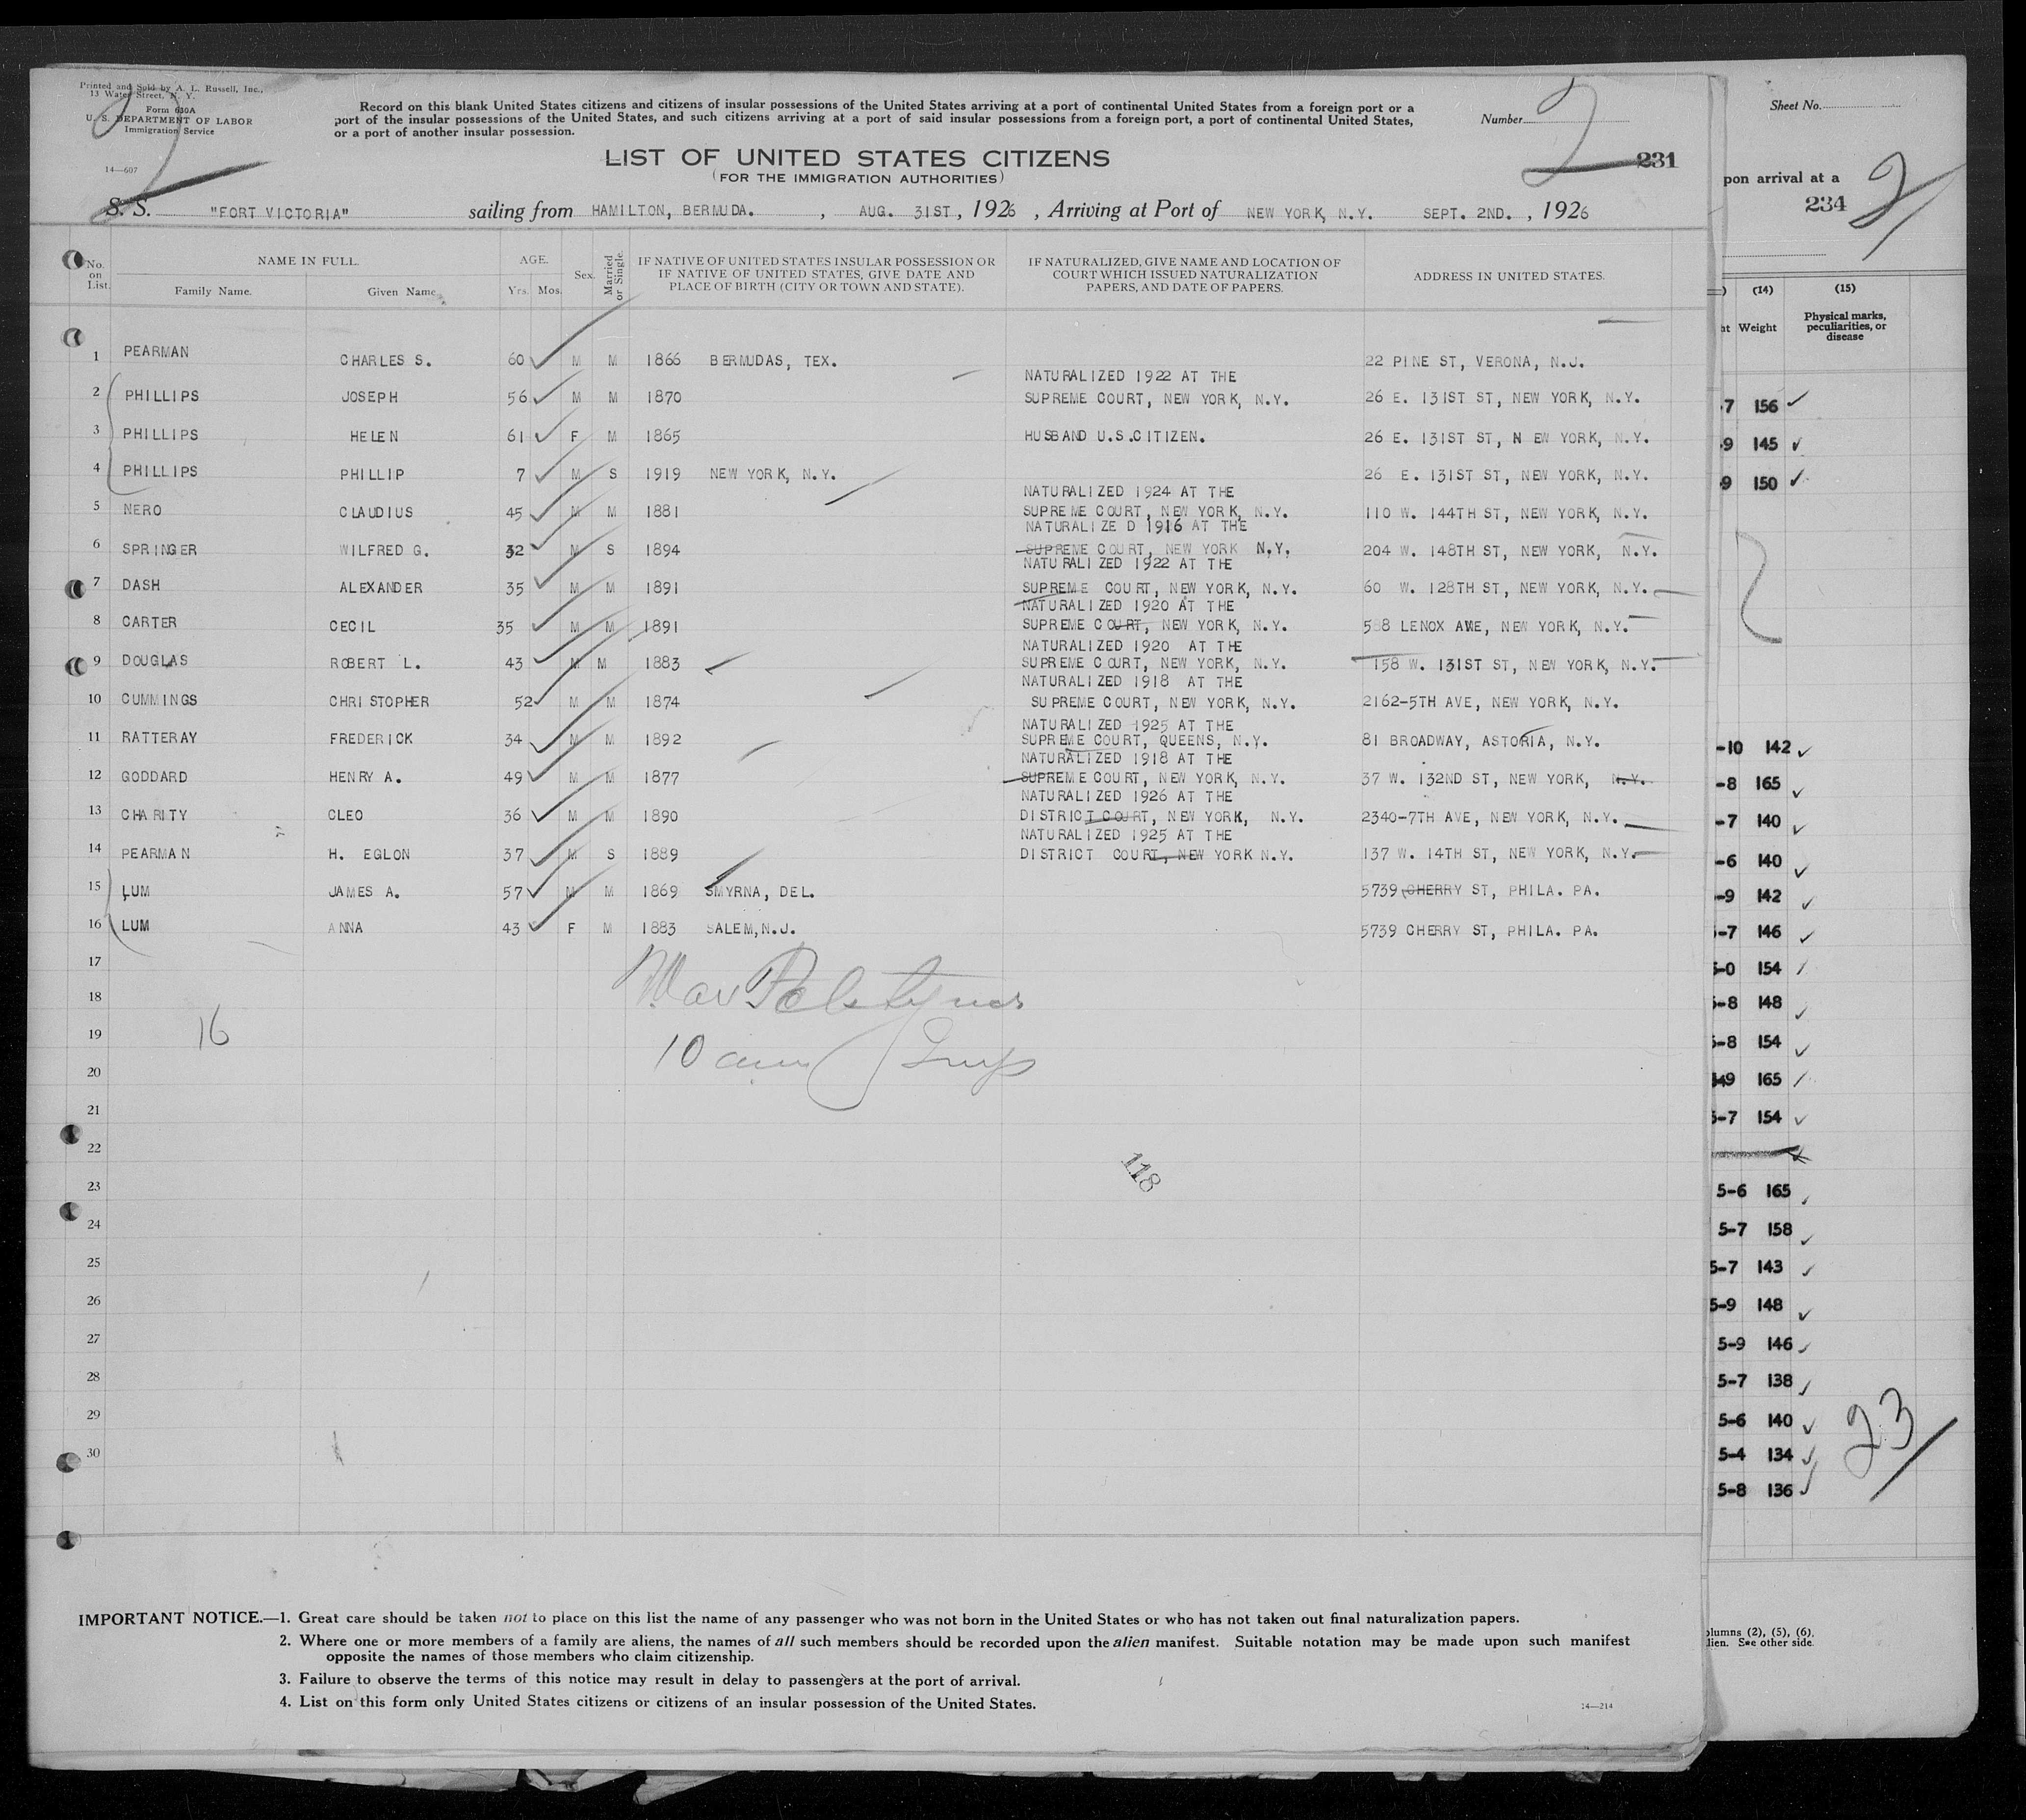 Printed and Sold by A. L. Russell, Inc.,
13 Water Street, N. Y.
Form 630A
U. S. DEPARTMENT OF LABOR
Immigration Service
14—607
2
Record on this blank United States citizens and citizens of insular possessions of the United States arriving at a port of continental United States from a foreign port or a
port of the insular possessions of the United States, and such citizens arriving at a port of said insular possessions from a foreign port, a port of continental United States,
or a port of another insular possession.
Number 2
231
LIST OF UNITED STATES CITIZENS
(FOR THE IMMIGRATION AUTHORITIES)
S. S. "FORT VICTORIA" sailing from HAMILTON, BERMUDA. , AUG. 31ST , 1926 , Arriving at Port of NEW YORK, N.Y. SEPT. 2ND. , 1926
No. on List. NAME IN FULL. Family Name. Given Name. AGE. Yrs. Mos. Sex. Married or Single.
IF NATIVE OF UNITED STATES INSULAR POSSESSION OR
IF NATIVE OF UNITED STATES, GIVE DATE AND
PLACE OF BIRTH (CITY OR TOWN AND STATE).
IF NATURALIZED, GIVE NAME AND LOCATION OF
COURT WHICH ISSUED NATURALIZATION
PAPERS, AND DATE OF PAPERS.
ADDRESS IN UNITED STATES.
1 PEARMAN CHARLES S. 60 M M 1866 BERMUDAS, TEX. 22 PINE ST, VERONA, N.J.
NATURALIZED 1922 AT THE
2 PHILLIPS JOSEPH 56 M M 1870 SUPREME COURT, NEW YORK, N.Y. 26 E. 131ST ST, NEW YORK, N.Y.
3 PHILLIPS HELEN 61 F M 1865 HUSBAND U.S.CITIZEN. 26 E. 131ST ST, N EW YORK, N.Y.
4 PHILLIPS PHILLIP 7 M S 1919 NEW YORK, N.Y. 26 E. 131ST ST, NEW YORK, N.Y.
NATURALIZED 1924 AT THE
5 NERO CLAUDIUS 45 M M 1881 SUPREME COURT, NEW YORK, N.Y. 110 W. 144TH ST, NEW YORK, N.Y.
NATURALIZE D 1916 AT THE
6 SPRINGER WILFRED G. 32 M S 1894 SUPREME COURT, NEW YORK N.Y. 204 W. 148TH ST, NEW YORK, N.Y.
NATURALIZED 1922 AT THE
7 DASH ALEXANDER 35 M M 1891 SUPREME COURT, NEW YORK, N.Y. 60 W. 128TH ST, NEW YORK, N.Y.
NATURALIZED 1920 AT THE
8 CARTER CECIL 35 M M 1891 SUPREME COURT, NEW YORK, N.Y. 588 LENOX AVE, NEW YORK, N.Y.
NATURALIZED 1920 AT THE
9 DOUGLAS ROBERT L. 43 M M 1883 SUPREME COURT, NEW YORK, N.Y. 158 W. 131ST ST, NEW YORK, N.Y.
NATURALIZED 1918 AT THE
10 CUMMINGS CHRISTOPHER 52 M M 1874 SUPREME COURT, NEW YORK, N.Y. 2162-5TH AVE, NEW YORK, N.Y.
NATURALIZED 1925 AT THE
11 RATTERAY FREDERICK 34 M M 1892 SUPREME COURT, QUEENS, N.Y. 81 BROADWAY, ASTORIA, N.Y.
NATURALIZED 1918 AT THE
12 GODDARD HENRY A. 49 M M 1877 SUPREME COURT, NEW YORK, N.Y. 37 W. 132ND ST, NEW YORK, N.Y.
NATURALIZED 1926 AT THE
13 CHARITY CLEO 36 M M 1890 DISTRICT COURT, NEW YORK, N.Y. 2340-7TH AVE, NEW YORK, N.Y.
NATURALIZED 1925 AT THE
14 PEARMAN H. EGLON 37 M S 1889 DISTRICT COURT, NEW YORK N.Y. 137 W. 14TH ST, NEW YORK, N.Y.
15 LUM JAMES A. 57 M M 1869 SMYRNA, DEL. 5739 CHERRY ST, PHILA. PA.
16 LUM ANNA 43 F M 1883 SALEM,N.J. 5739 CHERRY ST, PHILA. PA.
17
18
16
19
10 am
20
21
22
118
23
24
25
26
27
28
29
30
IMPORTANT NOTICE.—1. Great care should be taken not to place on this list the name of any passenger who was not born in the United States or who has not taken out final naturalization papers.
2. Where one or more members of a family are aliens, the names of all such members should be recorded upon the alien manifest. Suitable notation may be made upon such manifest
opposite the names of those members who claim citizenship.
3. Failure to observe the terms of this notice may result in delay to passengers at the port of arrival.
4. List on this form only United States citizens or citizens of an insular possession of the United States.
14—214
Sheet No.
pon arrival at a
234
2
(14) (15)
ht Weight Physical marks,
peculiarities, or
disease
-7 156
-9 145
-9 150
-10 142
-8 165
-7 140
-6 140
-9 142
-7 146
-0 154
-8 148
-8 154
-9 165
-7 154
5-6 165
5-7 158
5-7 143
5-9 148
5-9 146
5-7 138
5-6 140
23
5-4 134
5-8 136
olumns (2), (5), (6).
lien. See other side.